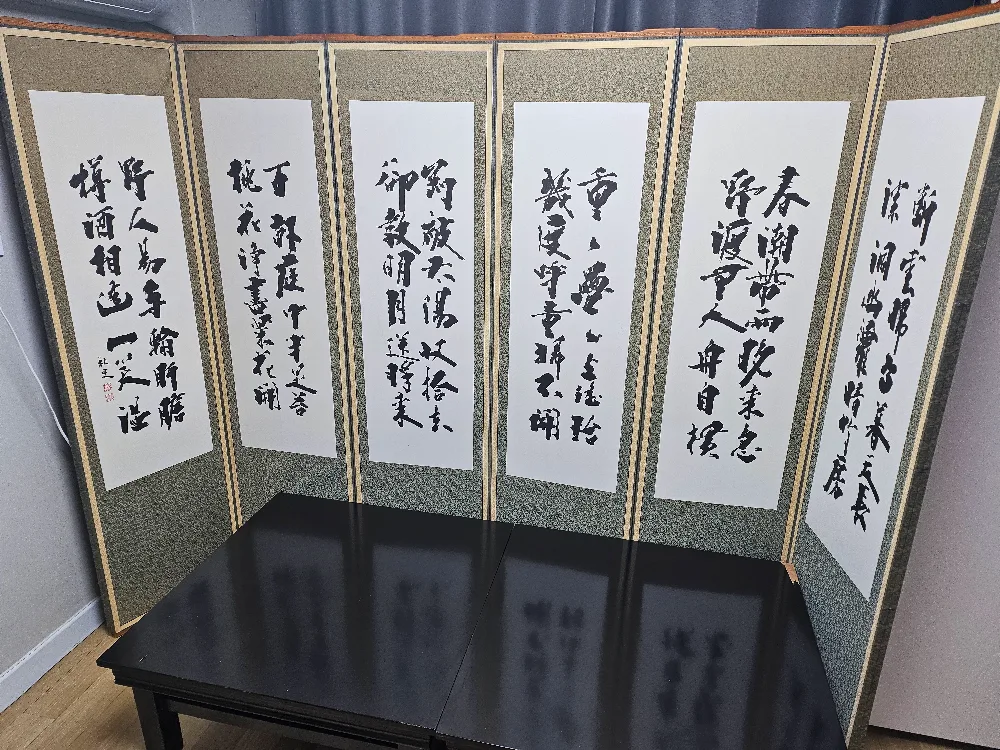 斷雲歸鳥暮天長
深洞幽蘿暗竹房
春潮帶雨晚來急
野渡無人舟自橫
重重疊疊上瑤臺
幾度呼童掃不開
剛被太陽收拾去
卻教明月送將來
百畝庭中半是苔
桃花淨盡菜花開
野人易與輸肝膽
樽酒相逢一笑溫